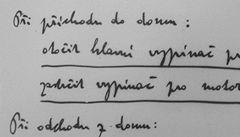 Při příchodu do domu:
otočit hlavní vypínač
vypínač pro motor
Při odchodu z domu: